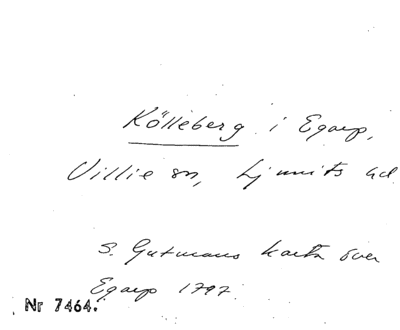 Kölleberg i Egarp,
Villie sn, Ljunits hd
S. Gutmans karta över
Egarp 1797.
Nr 7464.